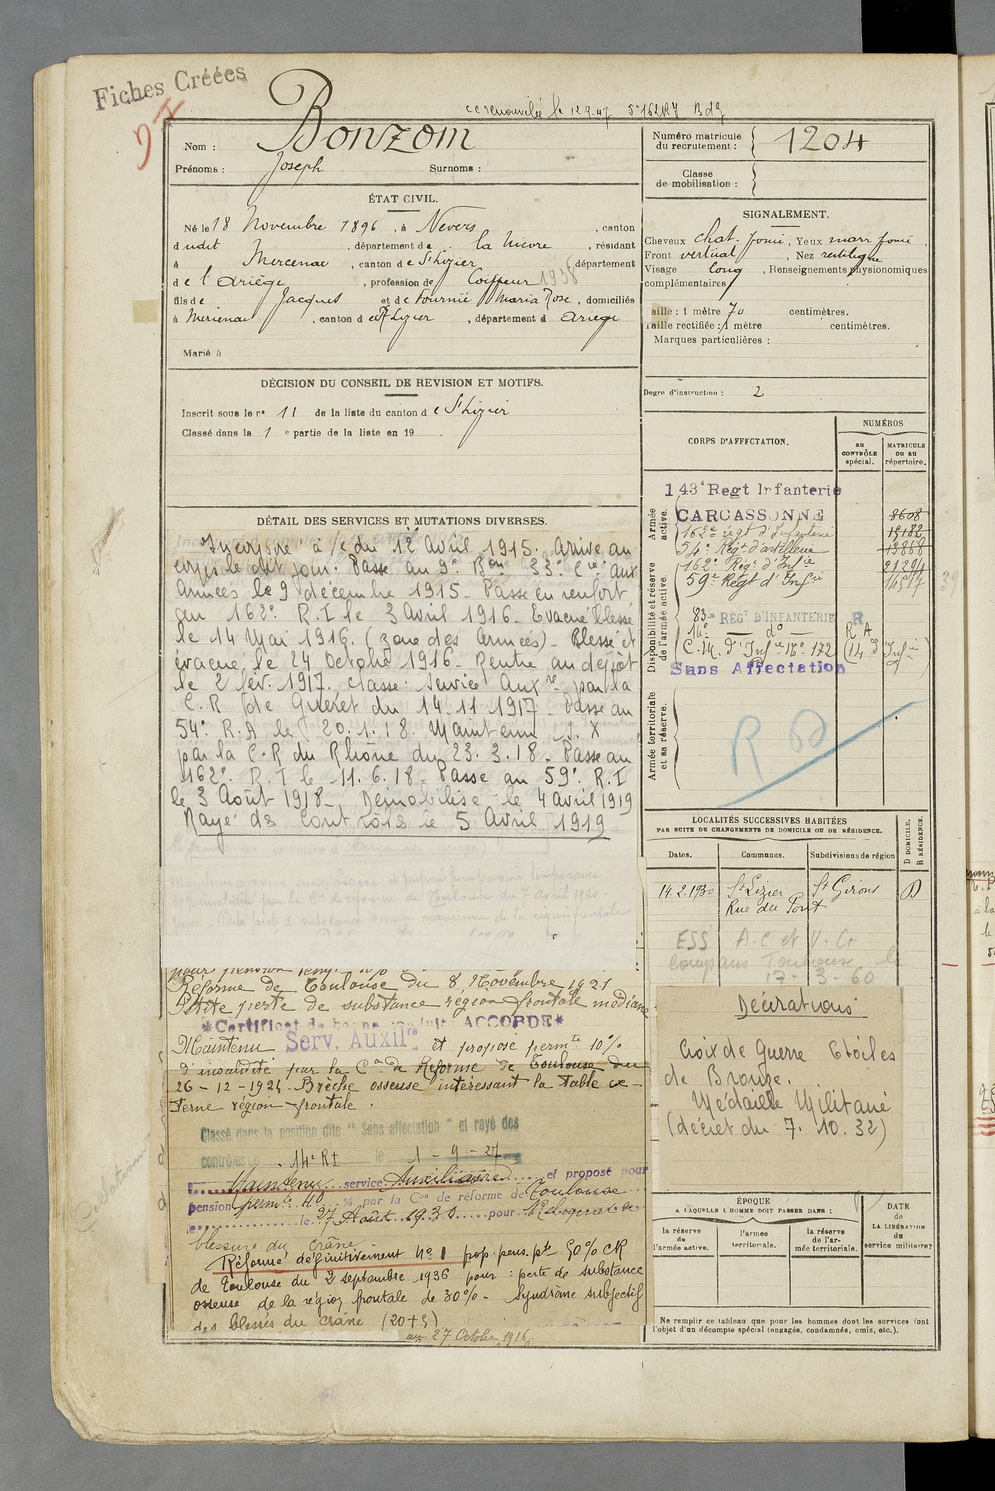 Fiches Créées
Nom : Bonzom
Prénoms : Joseph Surnoms :
Numéro matricule du recrutement : 1204
Classe de mobilisation :
ÉTAT CIVIL.
Né le 18 Novembre 1896, à Nevers, canton
dudit, département de la Nièvre, résidant
à Mercenac, canton de St Lizier, département
de l'Ariège, profession de Coiffeur 1936
fils de Jacques et de Fournié Maria Rose, domiciliés
à Mercenac, canton de St Lizier, département d Ariège
Marié à
SIGNALEMENT.
Cheveux chat. foncé, Yeux marr foncé,
Front vertical, Nez rectiligne
Visage long, Renseignements physionomiques
complémentaires
Taille : 1 mètre 70 centimètres.
Taille rectifiée : 1 mètre centimètres.
Marques particulières :
Degré d'instruction : 2
DÉCISION DU CONSEIL DE REVISION ET MOTIFS.
Inscrit sous le n° 11 de la liste du canton de St Lizier
Classé dans la 1e partie de la liste en 19
DÉTAIL DES SERVICES ET MUTATIONS DIVERSES.
Incorporé à/c du 12 Avril 1915. Arrivé au
corps le dit jour. Passé au 9e Bon 33e Cie aux
Armées le 9 décembre 1915. Passé en renfort
au 162e R.I le 3 Avril 1916. Evacué blessé
le 14 Mai 1916. (zone des Armées). Blessé et
évacué le 24 Octobre 1916. Rentré au dépôt
le 2 fév. 1917. Classé service Auxre par la
C.R de Guéret du 14.11.1917. Passé au
54e R.A le 20.1.18. Maintenu S.X
par la C.R du Rhône du 23.3.18. Passé au
162e R.I le 11.6.18. Passé au 59e R.I
le 3 Août 1918. Démobilisé le 4 avril 1919
Rayé ds Contrôls le 5 Avril 1919
Réforme de Toulouse du 8 Novembre 1921
Petite perte de substance région frontale médiane
*Certificat de bonne conduite ACCORDE*
Maintenu Serv. Auxilre et proposé permte 10%
d'invalidité par la Con de Réforme de Toulouse du
26-12-1924. Brèche osseuse intéressant la table ex-
terne région frontale.
Classé dans la position dite "Sans affectation" et rayé des
contrôles de 14e RI le 1-9-27
Maintenu service Auxiliaire et proposé pour
pension permte 40 % par la Con de réforme de Toulouse
le 27 Août 1930 pour
blessure du crâne
Réformé définitivement N° 1 prop. pens. pte 50% CR
de Toulouse du 2 septembre 1936 pour : perte de substance
osseuse de la région frontale de 30%. Syndrome subjectif
des blessés du crâne (20+5)
27 Octobre 1916
CORPS D'AFFECTATION.
NUMÉROS
au CONTRÔLE spécial.
MATRICULE ou au répertoire.
Armée active.
143e Regt Infanterie
CARCASSONNE 8608
162e régt d'Infanterie 15182
54e Régt d'artillerie 13868
162e Régt d'Infie 21291
59e Régt d'Infie 16517
Disponibilité et réserve de l'armée active.
83e REGt D'INFANTERIE R
14e do R A
C.M. d'Infie N° 172 (14 d'Infie
Sans Affectation
Armée territoriale et sa réserve.
LOCALITÉS SUCCESSIVES HABITÉES
PAR SUITE DE CHANGEMENTS DE DOMICILE OU DE RÉSIDENCE.
Dates. Communes. Subdivisions de région
D DOMICILE. R RÉSIDENCE.
14.2.1930 St Lizier St Girons D
Rue du Pont
ESS A.C et V.G
Toulouse le
17-3-60
Décorations:
Croix de Guerre Etoiles
de Bronze.
Médaille Militaire
(décret du 7.10.32)
ÉPOQUE
A LAQUELLE L'HOMME DOIT PASSER DANS :
la réserve de l'armée active.
l'armée territoriale.
la réserve de l'armée territoriale.
DATE de LA LIBÉRATION du service militaire.
Ne remplir ce tableau que pour les hommes dont les services font
l'objet d'un décompte spécial (engagés, condamnés, omis, etc.).